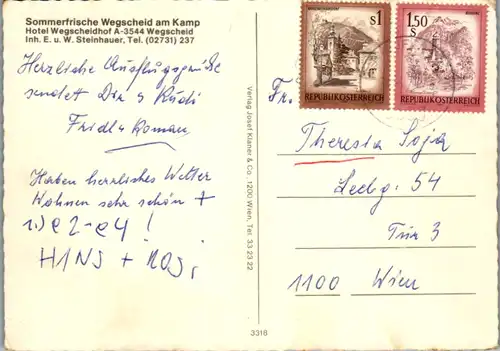 Sommerfrische Wegscheid am Kamp
Hotel Wegscheidhof A-3544 Wegscheid
Inh. E. u. W. Steinhauer, Tel. (02731) 237
Herzliche Ausflugsgrüße
sendett Dir & Rudi
Fridl & Roman
Haben herrliches Wetter
Wohnen sehr schön +
1.) e2-e4!
HANS + ROSi
Verlag Josef Klaner & Co., 1200 Wien, Tel. 33 23 22
3318
S1
REPUBLIK ÖSTERREICH
1.50
S
REPUBLIK ÖSTERREICH
Fr.
Theresia
54
Tür 3
1100 Wien